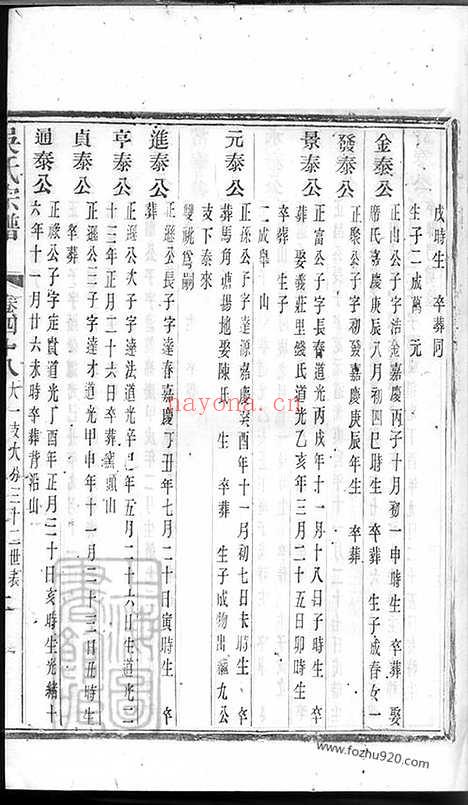 戌時生 卒葬同
生子二成萬 元
金泰公
正山公子字浩金嘉慶丙子十月初一申時生 卒葬 娶
席氏嘉慶庚辰八月初四巳時生 卒葬 生子成春女一
發泰公
正聚公子字初發嘉慶庚辰年生 卒葬
景泰公
正富公子字長春道光丙戌年十一月十八日子時生 卒
葬 娶義莊里錢氏道光乙亥年三月二十五日卯時生
卒葬 生子
二成阜 山
元泰公
正探公子字達宗嘉慶癸酉年十一月初七日未時生 卒
葬馬角嘴揚地娶陳氏 生 卒葬 生子成物出繼九公
支下泰來
雙祧爲嗣
進泰公
正遜公長子字達春嘉慶丁丑年七月二十日寅時生 卒
葬
亨泰公
正遜公次子字達法道光辛巳年五月二十六日生道光二
十三年正月二十六日卒葬窰頭山
貞泰公
正遜公三子字達才道光甲申年十一月二十三日丑時生
卒葬
通泰公
正嚴公子字定貴道光丁酉年正月二十日亥時生光緒十
六年十一月廿六未時卒葬背沿山
吳氏宗譜
卷四十八 大一支大分三十二世表
nayona.cn
www.fozhu920.com